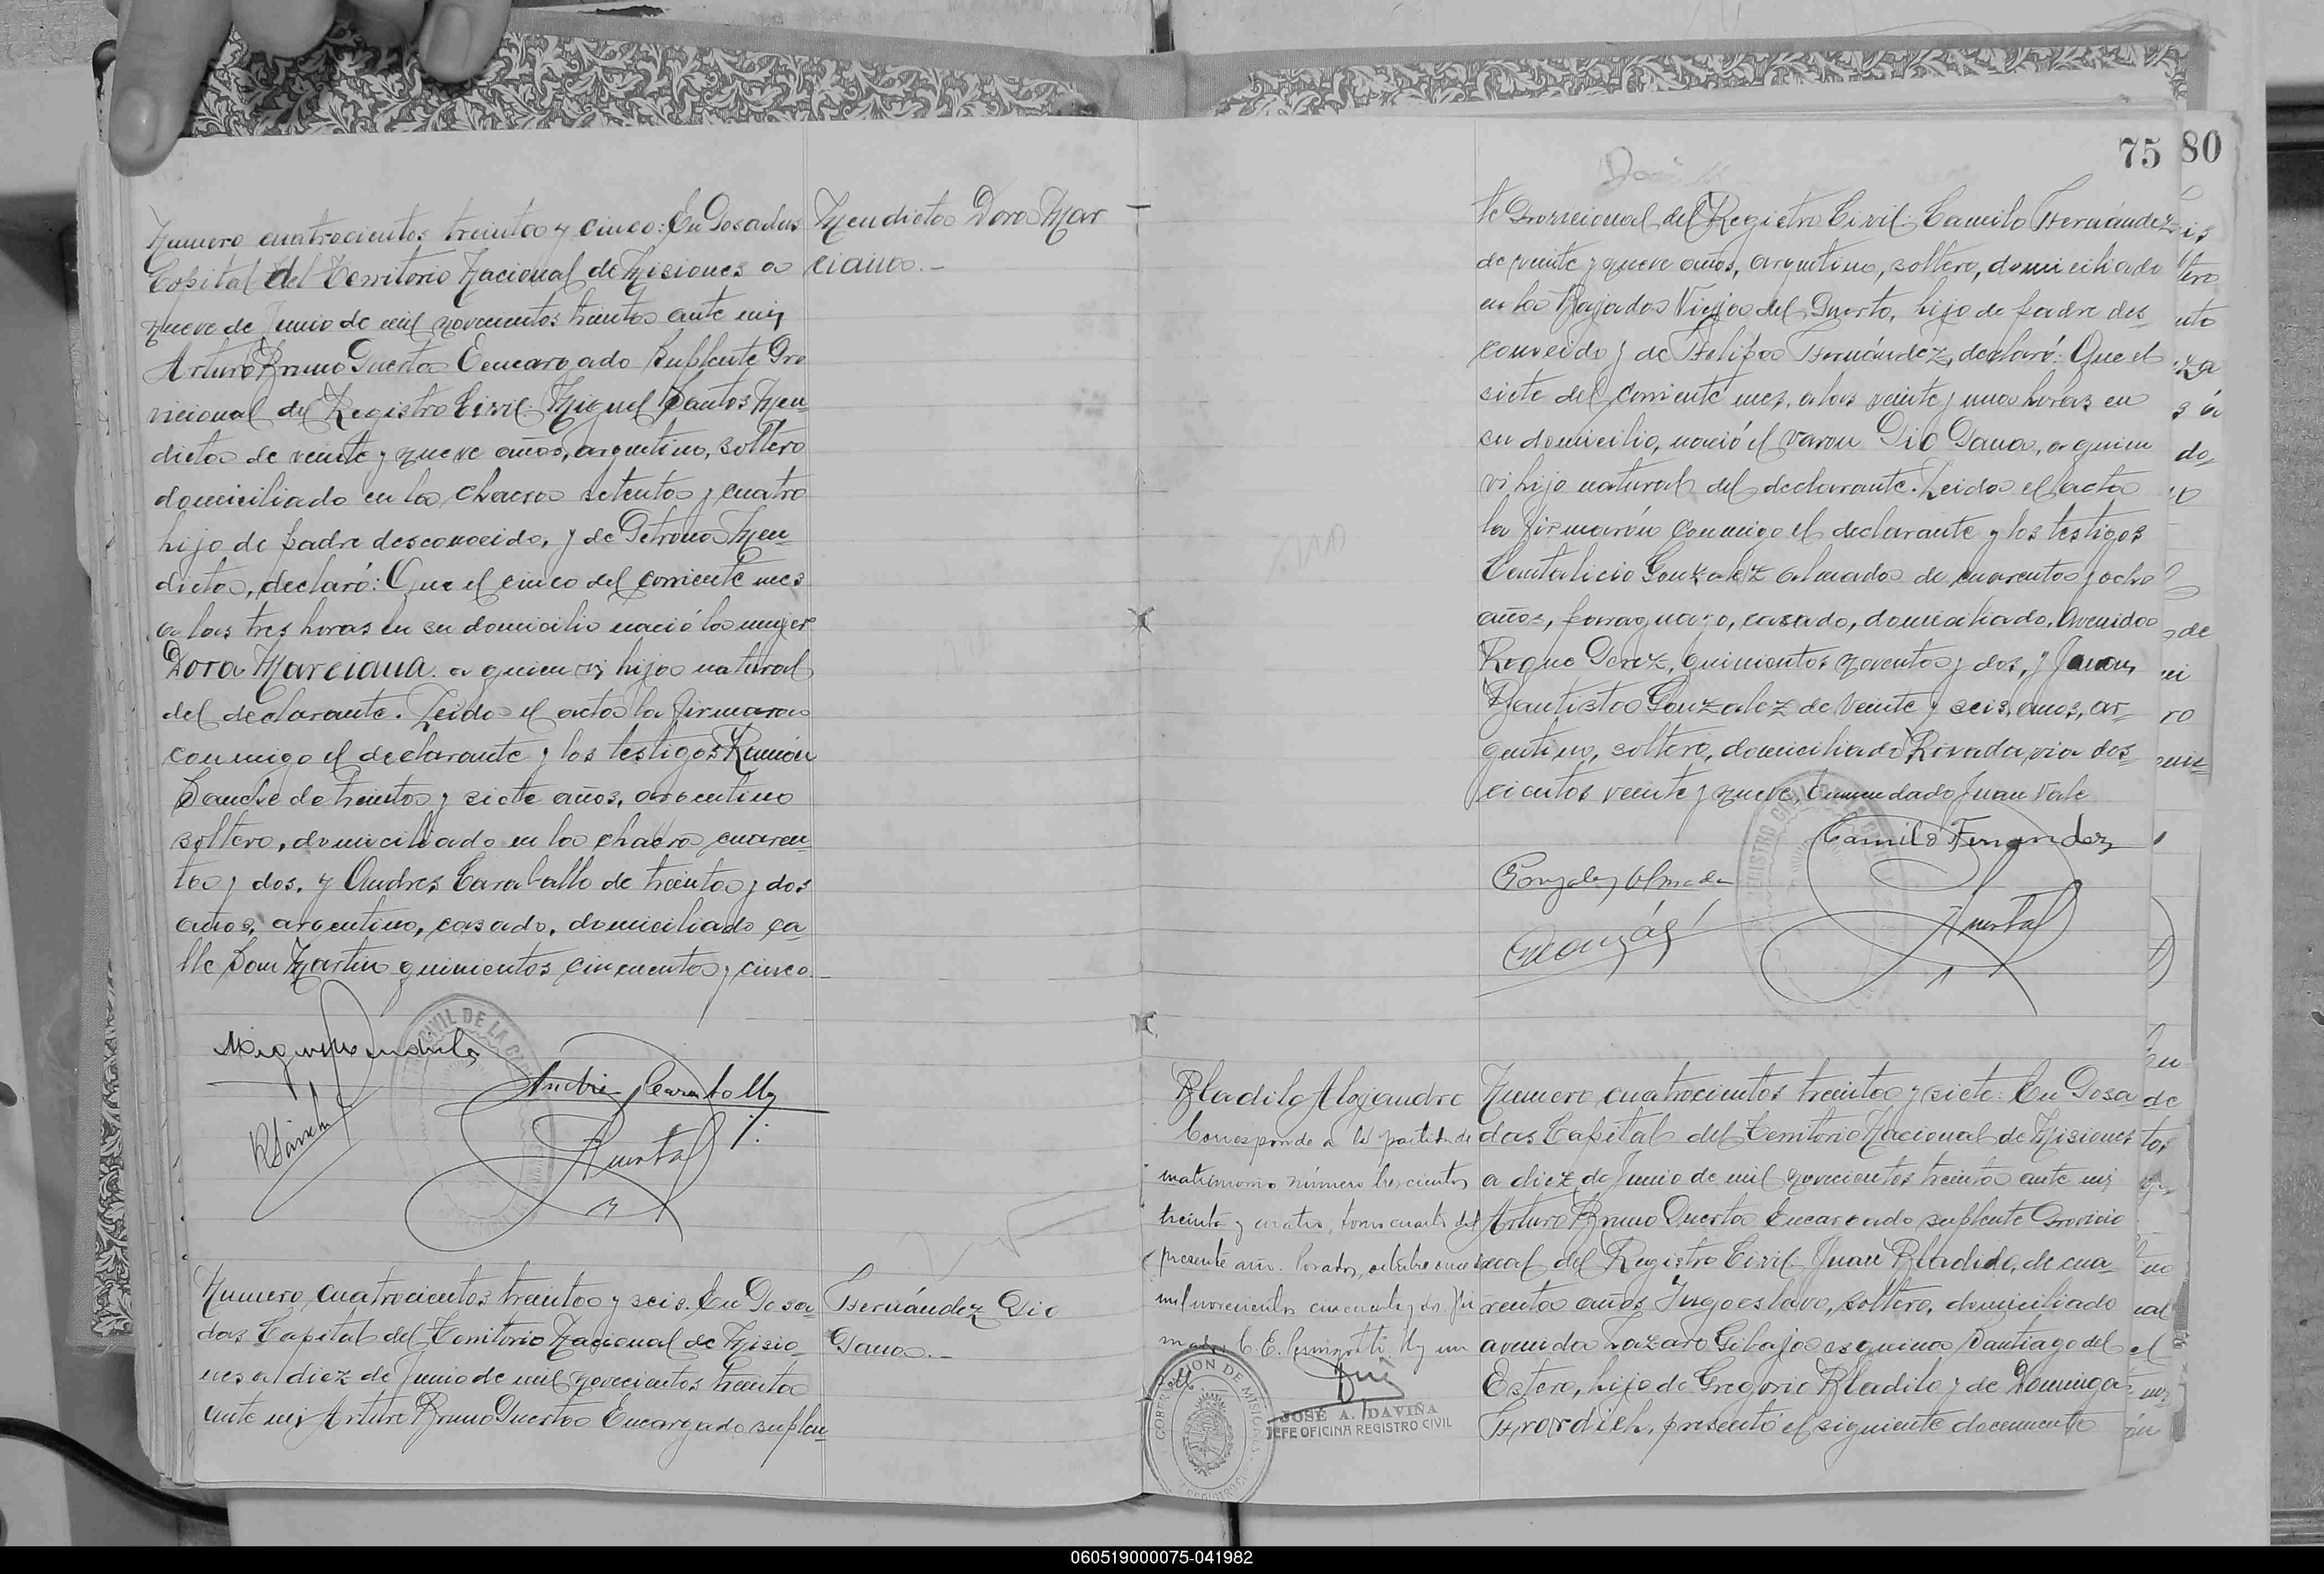 Numero cuatrocientos treinta y cinco: En Posadas
Capital del Territorio Nacional de Misiones a
nueve de Junio de mil novecientos treinta ante mi,
Arturo Bruno Puerta Encargado Suplente Pro
vicional del Registro Civil: Miguel Santos Men-
dieta de veinte y nueve años, argentino, soltero
domiciliado en la chacra setenta y cuatro
hijo de padre desconocido, y de Petrona Men-
dieta, declaró: Que el cinco del corriente mes
a las tres horas en su domicilio nació la mujer
Dora Marciana a quien vi, hija natural
del declarante. Leida el acta la firmaron
conmigo el declarante y los testigos Ramón
Sanche de treinta y siete años, argentino
soltero, domiciliado en la chacra cuaren-
ta y dos, y Andres Caraballo de treinta y dos
años, argentino, casado, domiciliado ca-
lle San Martin quinientos cincuenta y cinco.
Mendieta Dora Mar
ciana.-
CIVIL DE LA
Andres Caraballo
Puerta
Numero cuatrocientos treinta y seis. En Posa-
das Capital del Territorio Nacional de Misio-
nes a diez de Junio de mil novecientos treinta
ante mi Arturo Bruno Puerta Encargado suplen-
Fernández Pio
Pana.-
75 80
te Provicional del Registro Civil: Camilo Fernández
de veinte y nueve años, argentino, soltero, domiciliado
en la Bajada Vieja del Puerto, hijo de padre des-
conocido y de Felipa Fernández, declaró: Que el
siete del corriente mes, a las veinte y una horas en
su domicilio, nació el varon Pio Pana, a quien
vi hijo natural del declarante. Leida el acta
la firmarón conmigo el declarante y los testigos
Cantalicio Gonzalez Almada de cuarenta y ocho
años, paraguayo, casado, domiciliado, Avenida
Roque Perez, quinientos noventa y dos, y Juan
Bautista Gonzalez de veinte y seis, años, ar-
gentino, soltero, domiciliado Rivadavia dos-
cientos veinte y nueve, Enmendado Juan Vale
Camilo Fernandez
Gonzalez Almada
Puerta
Bladilo Alejandro
Corresponde a la partida de
matrimonio número trescientos
treinta y cuatro, tomo cuarto del
presente año. Posadas, octubre once de
mil novecientos cincuenta y dos. Fir
mado:
GOBERNACION DE MISIONES
REGISTRO CIVIL
JOSE A. DAVIÑA
JEFE OFICINA REGISTRO CIVIL
Numero cuatrocientos treinta y siete: En Posa-
das Capital del Territorio Nacional de Misiones
a diez de Junio de mil novecientos treinta ante mi
Arturo Bruno Puerta Encargado suplente Provicio
nal del Registro Civil: Juan Bladilo, de cua-
renta años, Yugoeslavo, soltero, domiciliado
avenida Lazaro Gibaja esquina Santiago del
Estero, hijo de Gregorio Bladilo y de Dominga
presentó el siguiente documento
060519000075-041982